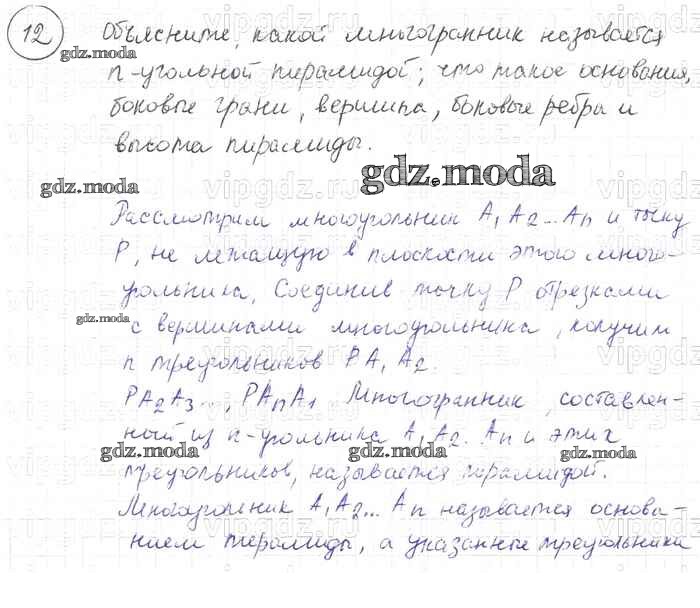 12 Объясните, какой многогранник называется
gdz.moda
n-угольной пирамидой; что такое основания,
боковые грани, вершина, боковые ребра и
высота пирамиды.
gdz.moda
gdz.moda
Рассмотрим многоугольник A1A2...An и точку
P, не лежащую в плоскости этого много-
угольника. Соединив точку P отрезками
с вершинами многоугольника, получим
n треугольников PA1A2.
PA2A3..., PAnA1. Многогранник, составлен-
ный из n-угольника A1A2.An и этих
gdz.moda
gdz.moda
треугольников, называется пирамидой.
Многоугольник A1A2...An называется основа-
нием пирамиды, а указанные треугольники